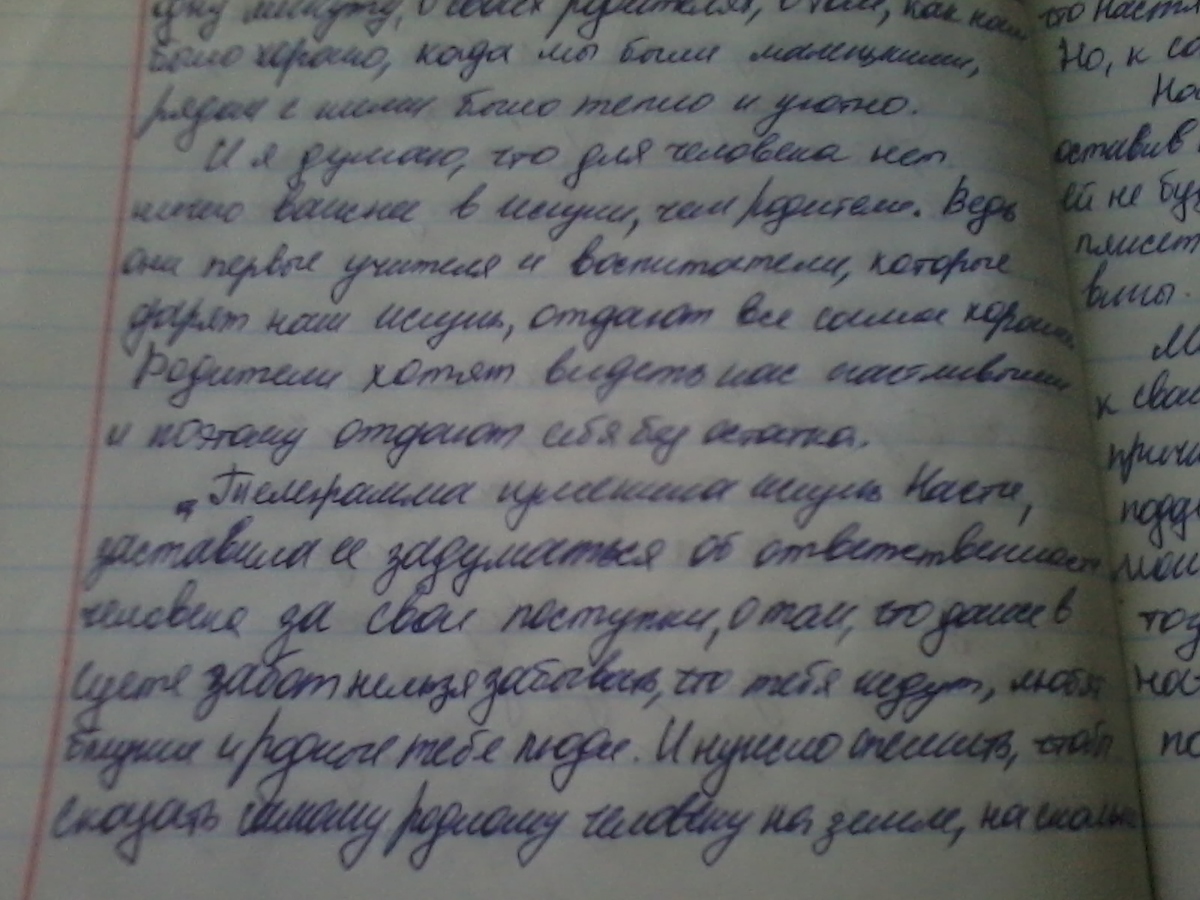 одну минуту, о своих родителях, о том, как нам
было хорошо, когда мы были маленькими,
рядом с ними было тепло и уютно.
И я думаю, что для человека нет
ничего важнее в жизни, чем родители. Ведь
они первые учителя и воспитатели, которые
дарят нам жизнь, отдают все самое хорошее.
Родители хотят видеть нас счастливыми
и поэтому отдают себя без остатка.
„Телеграмма изменила жизнь Насти,
заставила её задуматься об ответственности
человека за свои поступки, о том, что даже в
суете забот нельзя забывать, что тебя ждут, любят
близкие и родные тебе люди. И нужно спешить, чтобы
сказать самому родному человеку на земле, насколько
что Настя
Но, к со
Нас
оставив
ей не буд
плисет
вины.
М
к свои
причи
подд
мои
тоц
Нас
по